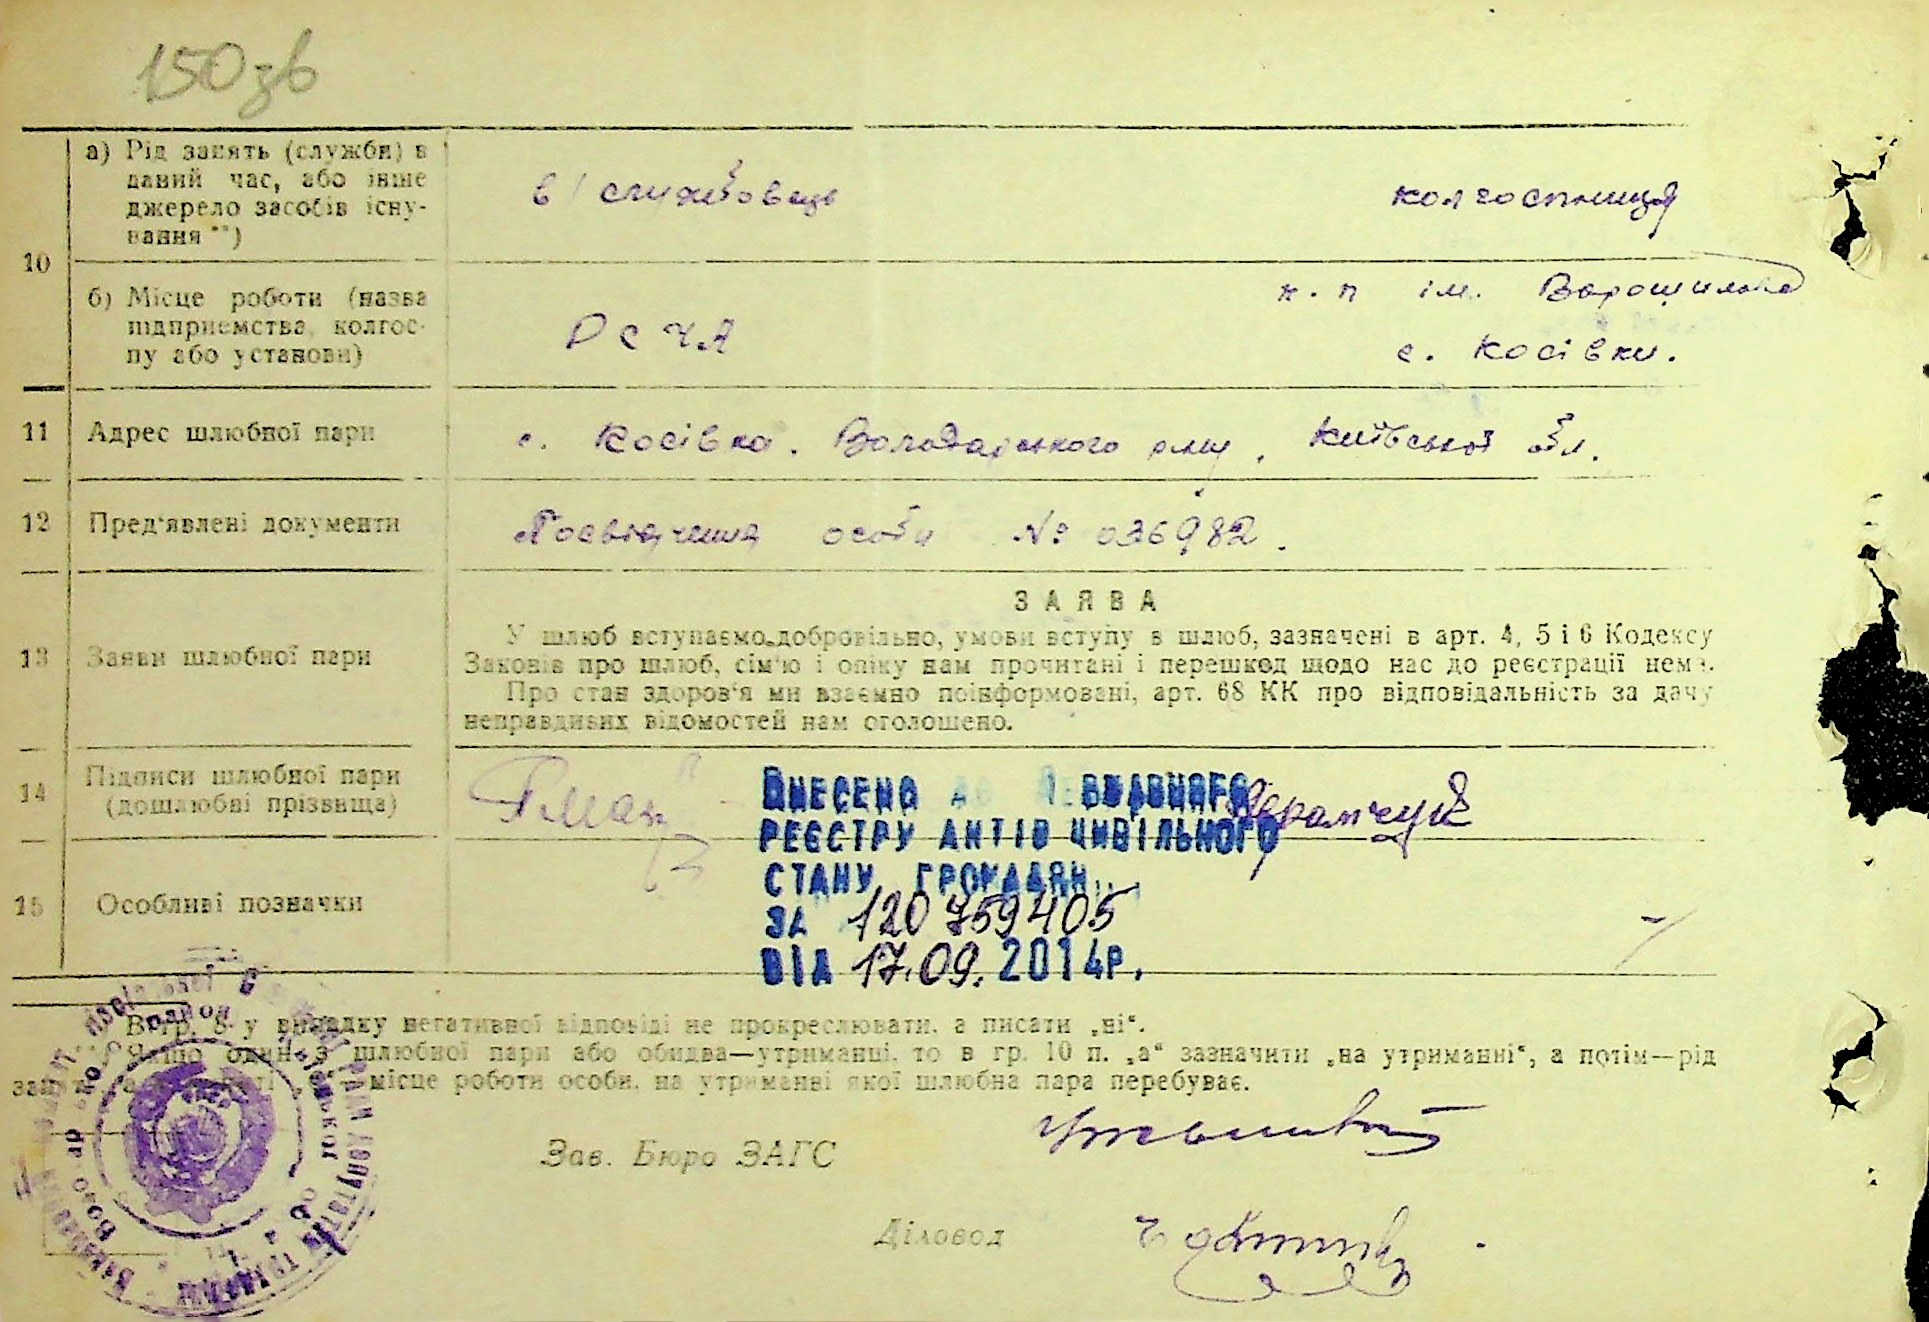 150зв
а) Рід занять (служби) в
даний час, або інше
джерело засобів існу-
вання **)
в/службовець
колгоспниця
10
б) Місце роботи (назва
підприємства, колгос-
пу або установи)
РСЧА
к.п ім. Ворошилова
с. Косівки.
11 Адрес шлюбної пари
с. Косівка. Володарського р-ну, Київської обл.
12 Пред'явлені документи
Посвідчення особи № 036982.
ЗАЯВА
13 Заяви шлюбної пари
У шлюб вступаємо добровільно, умови вступу в шлюб, зазначені в арт. 4, 5 і 6 Кодексу
Законів про шлюб, сім'ю і опіку нам прочитані і перешкод щодо нас до реєстрації нема.
Про стан здоров'я ми взаємно поінформовані, арт. 68 КК про відповідальність за дачу
неправдивих відомостей нам оголошено.
14 Підписи шлюбної пари
(дошлюбні прізвища)
ВНЕСЕНО ДО ДЕРЖАВНОГО
РЕЄСТРУ АКТІВ ЦИВІЛЬНОГО
СТАНУ ГРОМАДЯН
ЗА 120759405
ВІД 17.09.2014р.
15 Особливі позначки
В гр. 8 у випадку негативної відповіді не прокреслювати, а писати „ні“.
Якщо один з шлюбної пари або обидва—утриманці, то в гр. 10 п. „а“ зазначити „на утриманні“, а потім—рід
місце роботи особи, на утриманні якої шлюбна пара перебуває.
Зав. Бюро ЗАГС
Діловод